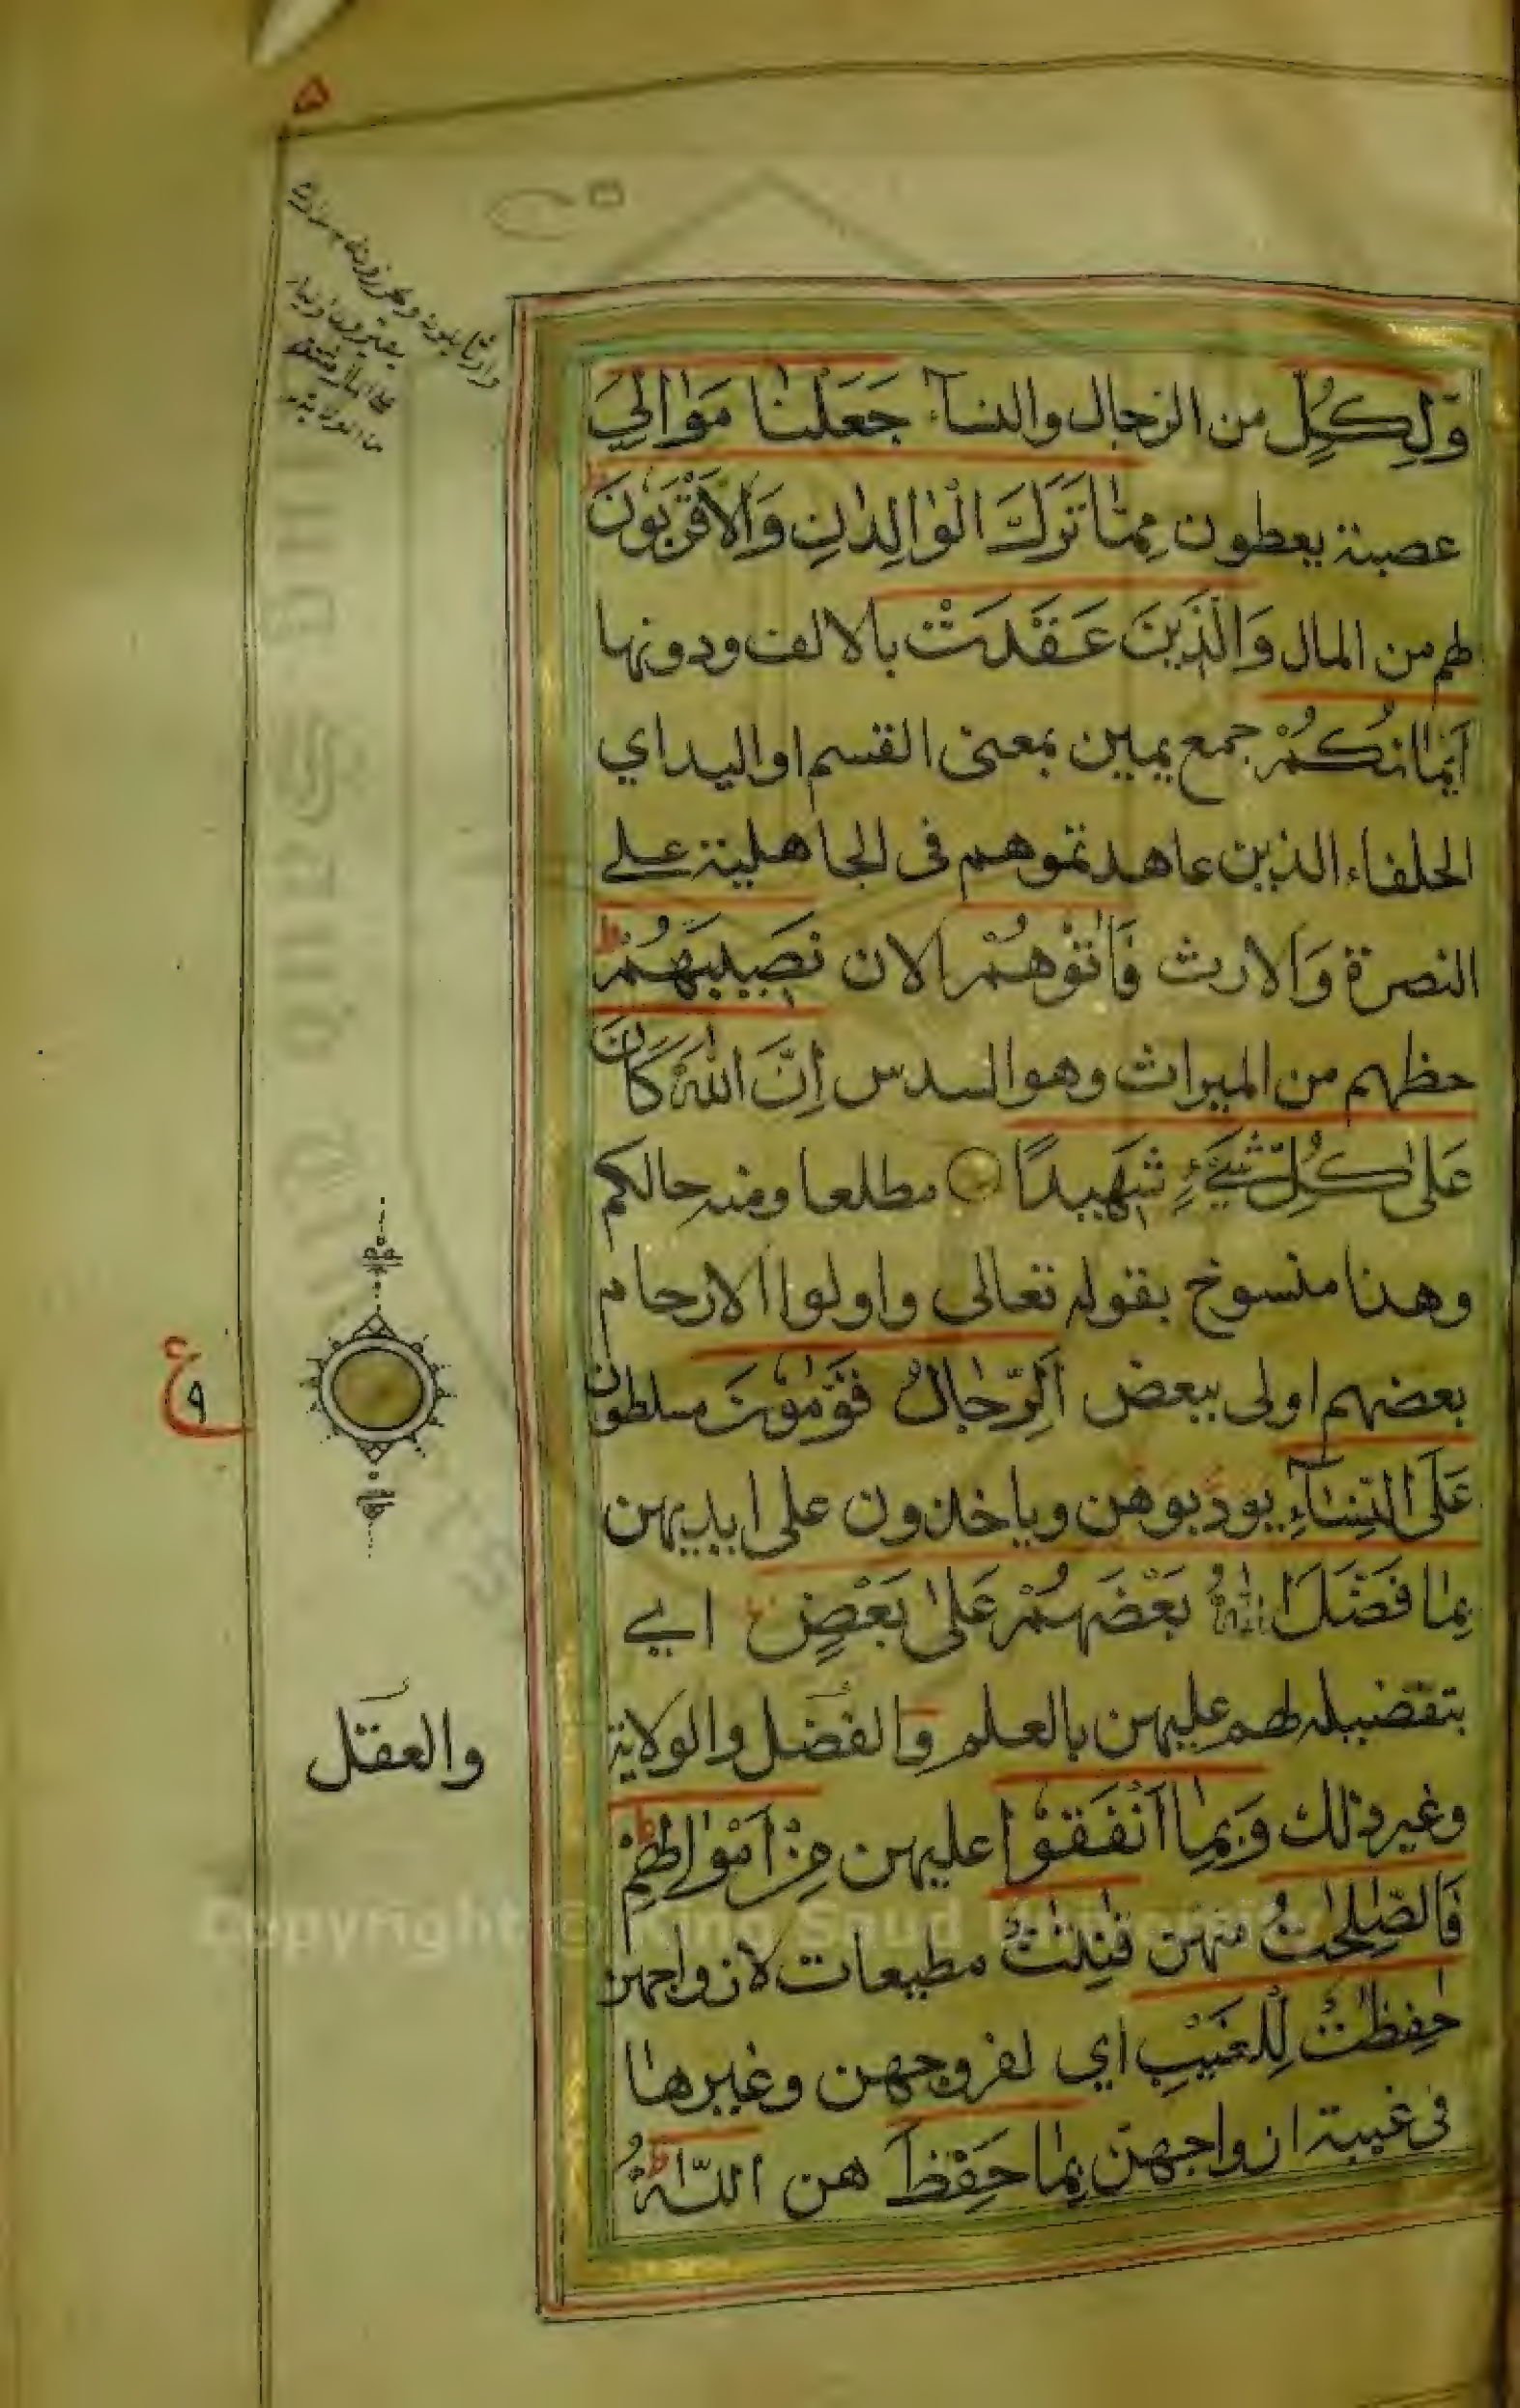 ۵
وَلِكُلٍّ من الرجال والنسآء جَعَلْنَا مَوَالِيَ
عصبة يعطون مِمَّا تَرَكَ الْوَالِدَانِ وَالْأَقْرَبُونَ ط
لهم من المال وَالَّذِينَ عَقَدَتْ بالالف ودونها
أَيْمَانُكُمْ جمع يمين بمعنى القسم او اليد اي
الحلفاء الذين عاهدتموهم فى الجاهلية على
النصرة والارث فَآتُوهُمْ الان نَصِيبَهُمْ ط
حظهم من الميراث وهو السدس إِنَّ اللَّهَ كَانَ
عَلَىٰ كُلِّ شَيْءٍ شَهِيدًا مطلعا ومنه حالكم
وهذا منسوخ بقوله تعالى واولوا الارحام
بعضهم اولى ببعض اَلرِّجَالُ قَوَّامُونَ مسلطون
عَلَى النِّسَآءِ يودبوهن وياخذون على ايديهن
بِمَا فَضَّلَ اللَّهُ بَعْضَهُمْ عَلَىٰ بَعْضٍ اي
بتفضيله لهم عليهن بالعلم والفضل والولاية
والعقل
وغير ذلك وَبِمَا أَنْفَقُوا عليهن مِنْ أَمْوَالِهِمْ ط
فَالصَّلِحَٰتُ منهن قَٰنِتَٰتٌ مطيعات لازواجهن
حَٰفِظَٰتٌ لِلْغَيْبِ اي لفروجهن وغيرها
فى غيبة ازواجهن بِمَا حَفِظَ هن اللَّهُ ط
ع ٩
Copyright © King Saud University